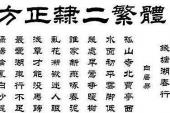 方正隸二繁體
錢塘湖春行
白居易
孤山寺北賈亭西
水面初平雲腳低
幾處早鶯爭暖樹
誰家新燕啄春泥
亂花漸欲迷人眼
淺草才能沒馬蹄
最愛湖東行不足
綠楊陰裏白沙堤